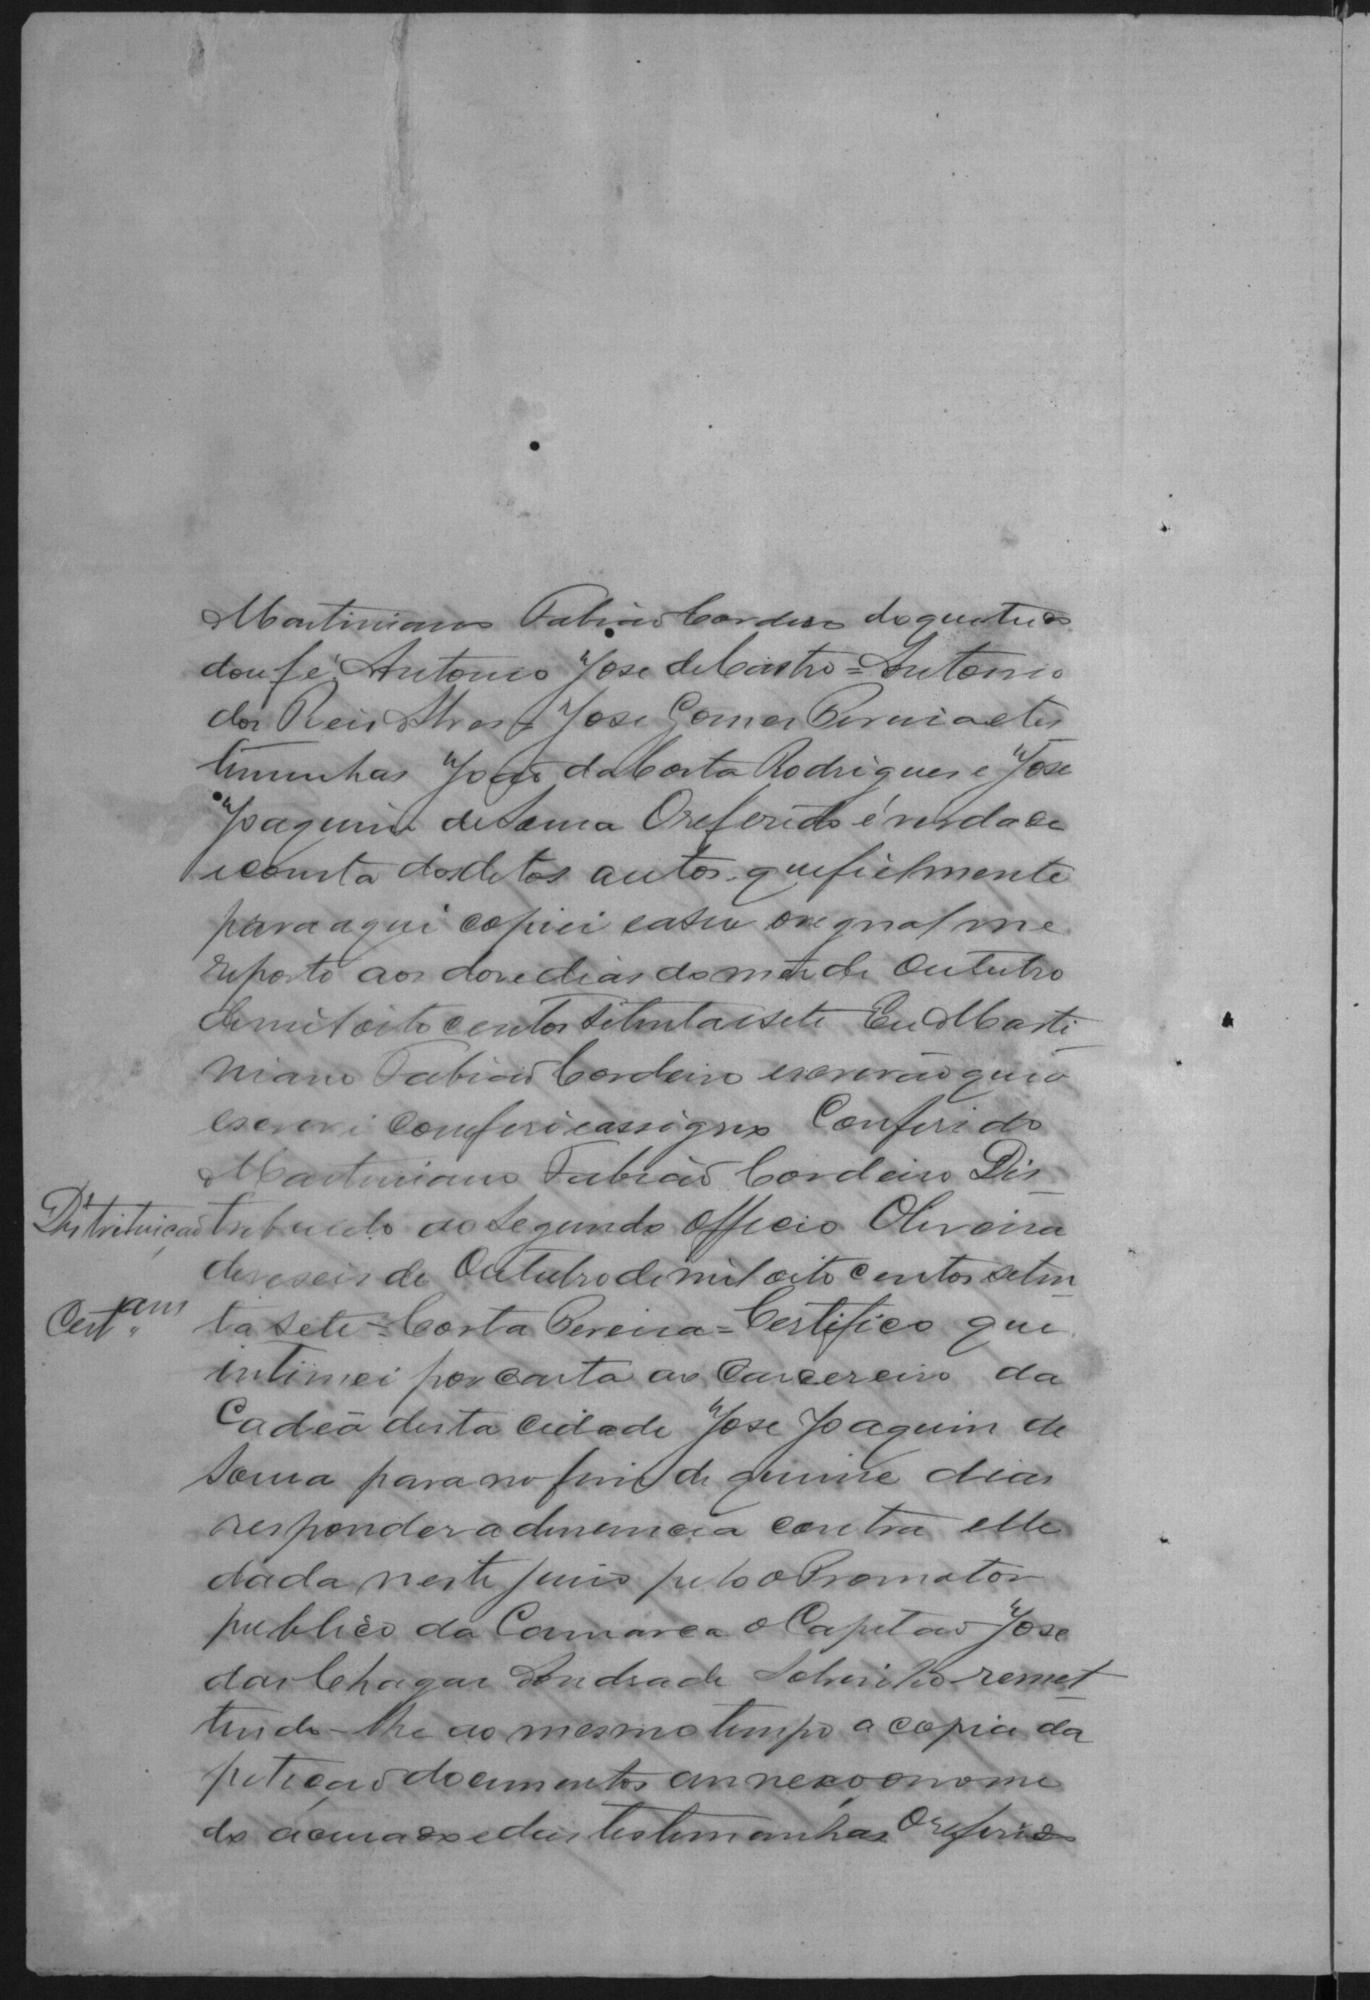 Martiniano Fabião Cordeiro do que tudo
dou fé. Antonio Jose de Castro = Antonio
dos Reis Alves = Jose Gomes Pereira e tes
timunhas João da Costa Rodrigues e Jose
Joaquim de Sousa O referido é verdade
e consta dos ditos autos que fielmente
para aqui copiei e a seu original me
reporto aos doze dias do mez de Outubro
de mil oito centos setenta e sete Eu Marti
niano Fabião Cordeiro escrivão que o
escrevi conferi e assigno Conferido
Martiniano Fabião Cordeiro Dis
Distribuição
tribuido ao Segundo Officio Oliveira
deseseis de Outubro de mil oito centos seten
Cert.am
ta sete = Costa Pereira = Certifico que
intimei por carta ao Carcereiro da
Cadêa desta cidade Jose Joaquim de
Sousa para no fim de quinze dias
responder a denuncia contra elle
dada neste juiso pelo o Promotor
publico da Comarca o Capitão Jose
das Chagas Andrade Sobrinho remet
tendo-lhe ao mesmo tempo a copia da
petição documentos annexo o nome
do acusado e das testimunhas O referido